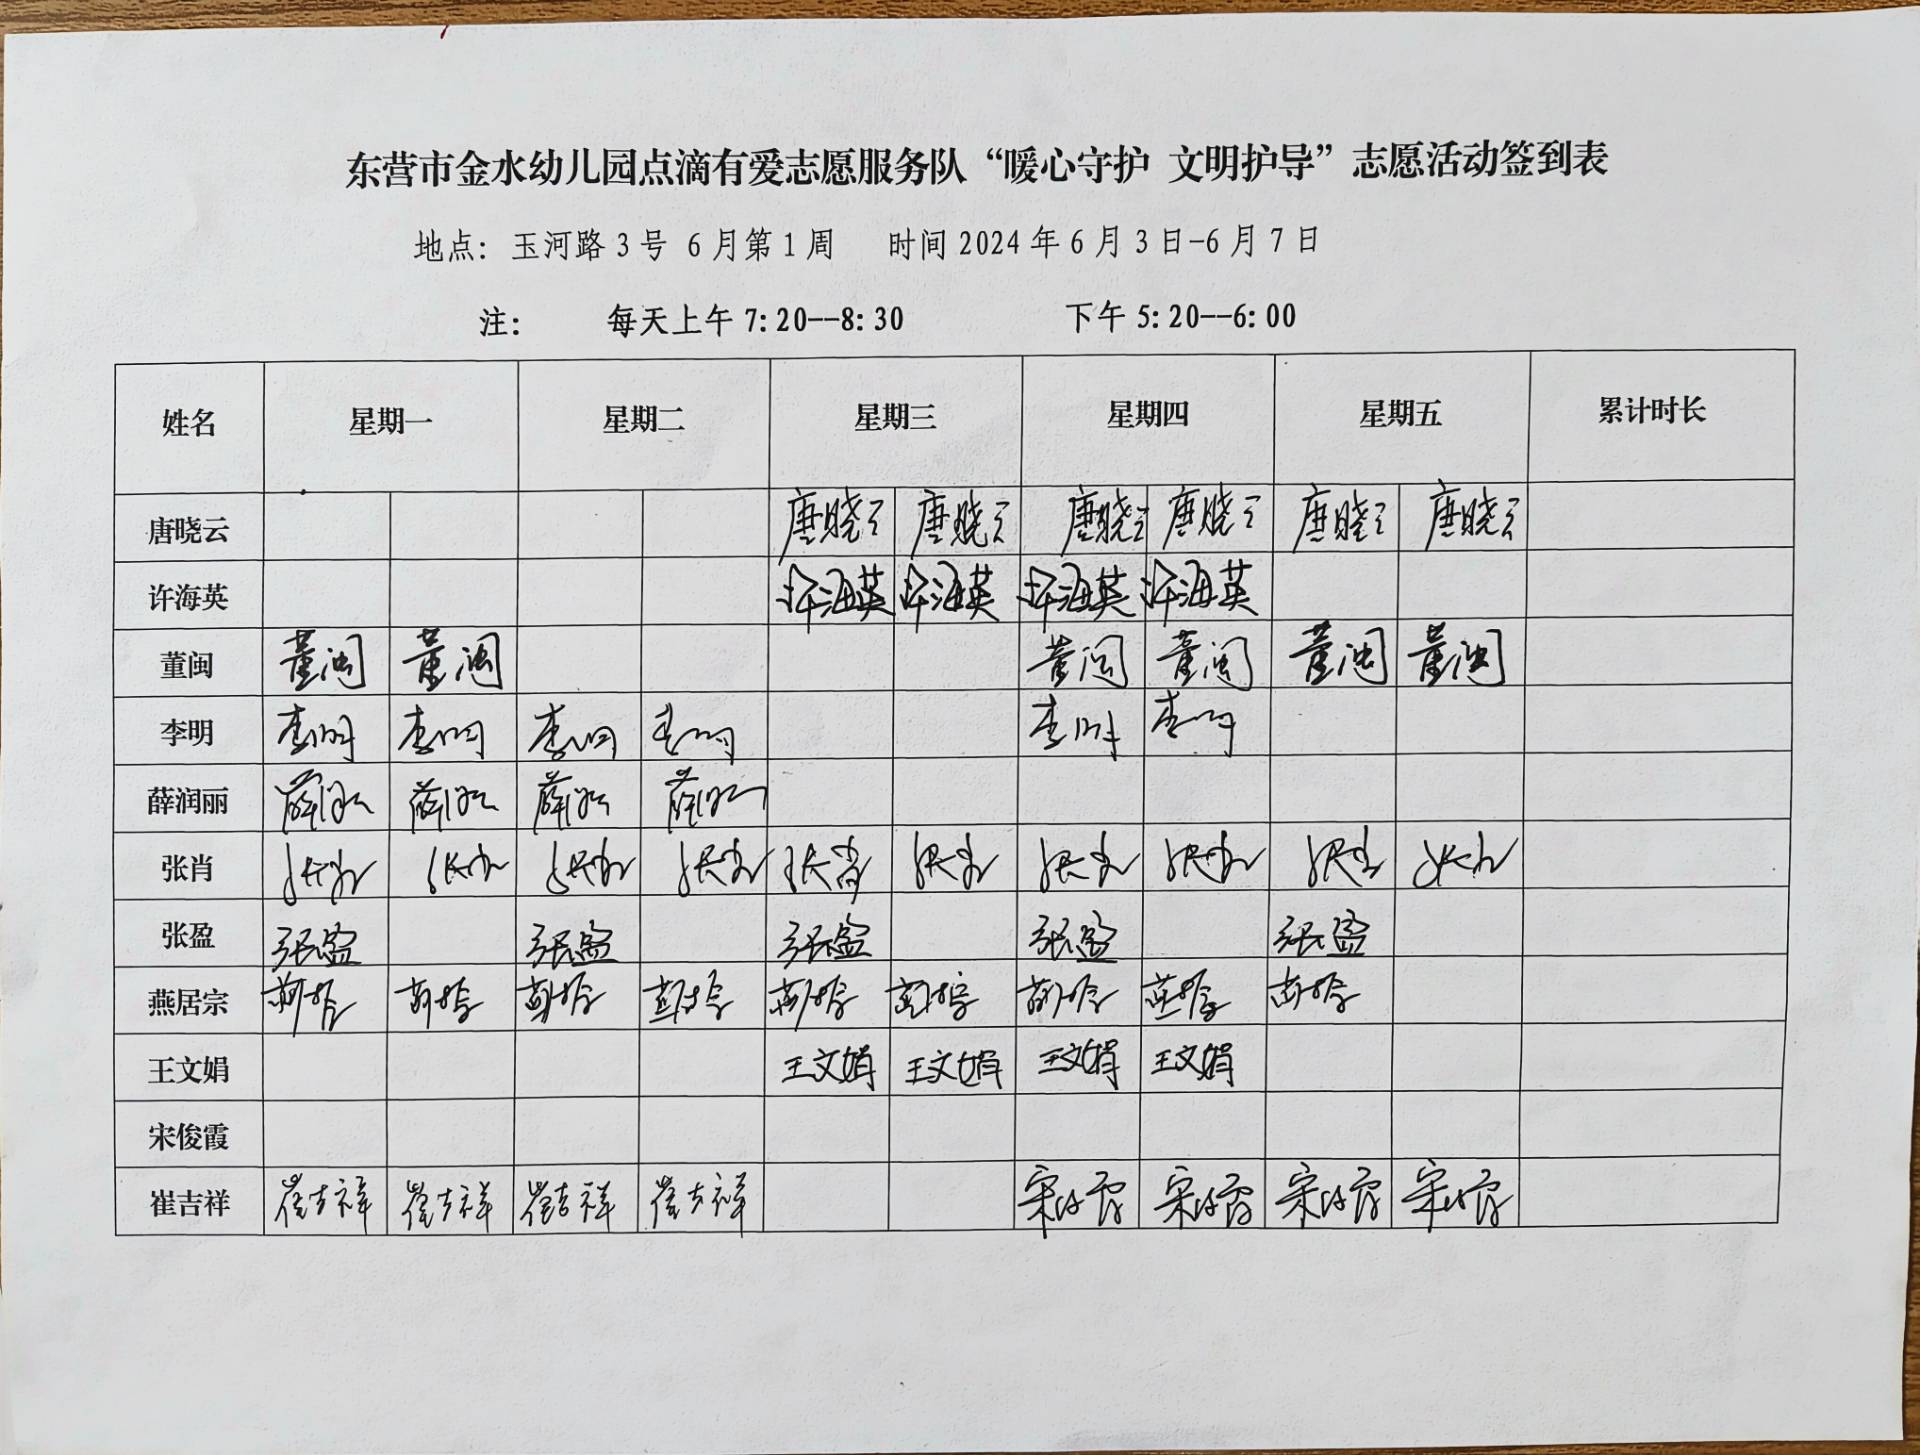 东营市金水幼儿园点滴有爱志愿服务队“暖心守护 文明护导”志愿活动签到表
地点：玉河路3号 6月第1周 时间2024年6月3日-6月7日
注： 每天上午7:20--8:30 下午5:20--6:00
姓名 星期一 星期二 星期三 星期四 星期五 累计时长
唐晓云 唐晓云 唐晓云 唐晓云 唐晓云 唐晓云 唐晓云
许海英 许海英 许海英 许海英 许海英
董闽 董闽 董闽 董闽 董闽 董闽 董闽
李明 李明 李明 李明 李明 李明 李明
薛润丽 薛润丽 薛润丽 薛润丽 薛润丽
张肖 张肖 张肖 张肖 张肖 张肖 张肖 张肖 张肖 张肖 张肖
张盈 张盈 张盈 张盈 张盈 张盈
燕居宗 燕居宗 燕居宗 燕居宗 燕居宗 燕居宗 燕居宗 燕居宗 燕居宗 燕居宗
王文娟 王文娟 王文娟 王文娟 王文娟
宋俊霞
崔吉祥 崔吉祥 崔吉祥 崔吉祥 崔吉祥 宋俊霞 宋俊霞 宋俊霞 宋俊霞